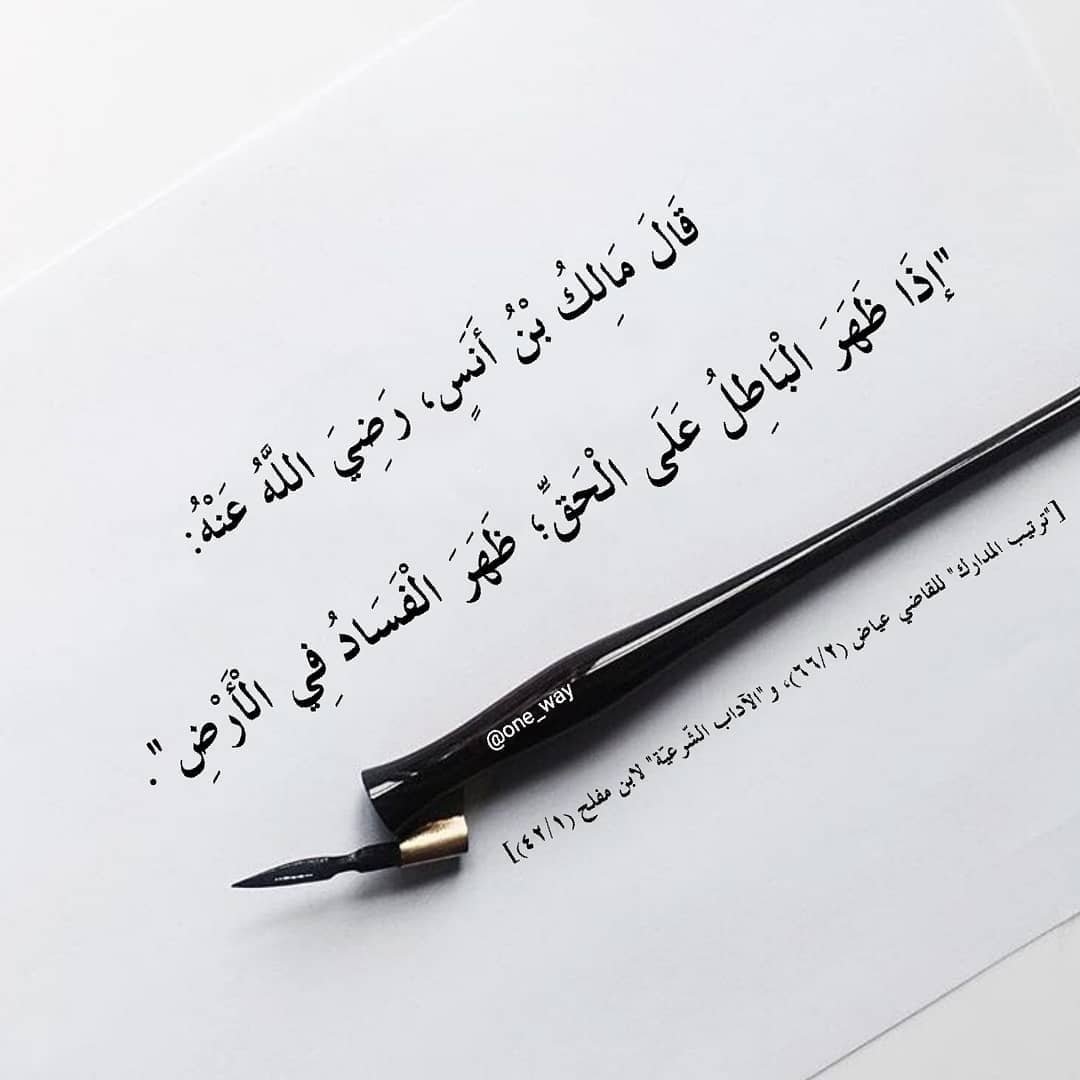 قَالَ مَالِكُ بْنُ أَنَسٍ، رَضِيَ اللَّهُ عَنْهُ:
"إِذَا ظَهَرَ الْبَاطِلُ عَلَى الْحَقِّ؛ ظَهَرَ الْفَسَادُ فِي الْأَرْضِ".
["ترتيب المدارك" للقاضي عياض (٦٦/٢)، و"الآداب الشّرعيّة" لابن مفلح (٤٢/١)]
@one_way